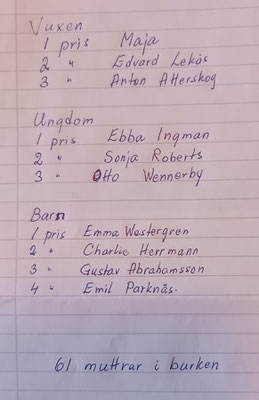 Vuxen
1 pris Maja
2 " Edvard Lekås
3 " Anton Atterskog
Ungdom
1 pris Ebba Ingman
2 " Sonja Roberts
3 " Otto Wennerby
Barn
1 pris Emma Westergren
2 " Charlie Herrmann
3 " Gustav Abrahamsson
4 " Emil Parknäs.
61 muttrar i burken